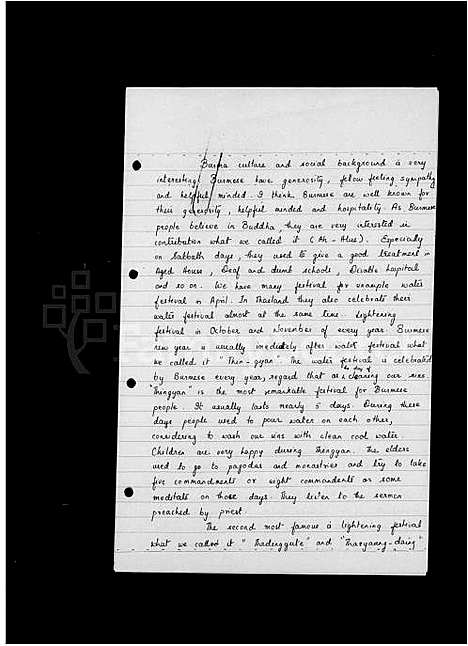 Burma culture and social background is very
interesting. Burmese have generosity, fellow feeling sympathy
and helpful minded. I think Burmese are well known for
their generosity, helpful minded and hospitality. As Burmese
people believe in Buddha, they are very interested in
contribution what we called it (Ah-Hlus). Especially
on Sabbath days, they used to give a good treatment in
Aged House, Deaf and dumb schools, Disable hospital
and so on. We have many festival for example water
festival in April. In Thailand they also celebrate their
water festival almost at the same time. Lightening
festival in October and November of every year. Burmese
new year is usually imediately after water festival what
we called it "Thin-gyan". The water festival is celebrated
by Burmese every year, regard that as the day of cleaning our sins.
"Thingyan" is the most remarkable festival for Burmese
people. It usually lasts nearly 5 days. During these
days people used to pour water on each other,
considering to wash our sins with clean cool water.
Children are very happy during Thingyan. The elders
used to go to pagodas and monastries and try to take
five commandments or eight commandents or some
meditate on those days. They listen to the sermon
preached by priest.
The second most famous is lightening festival
what we called it "Thadinggyute" and